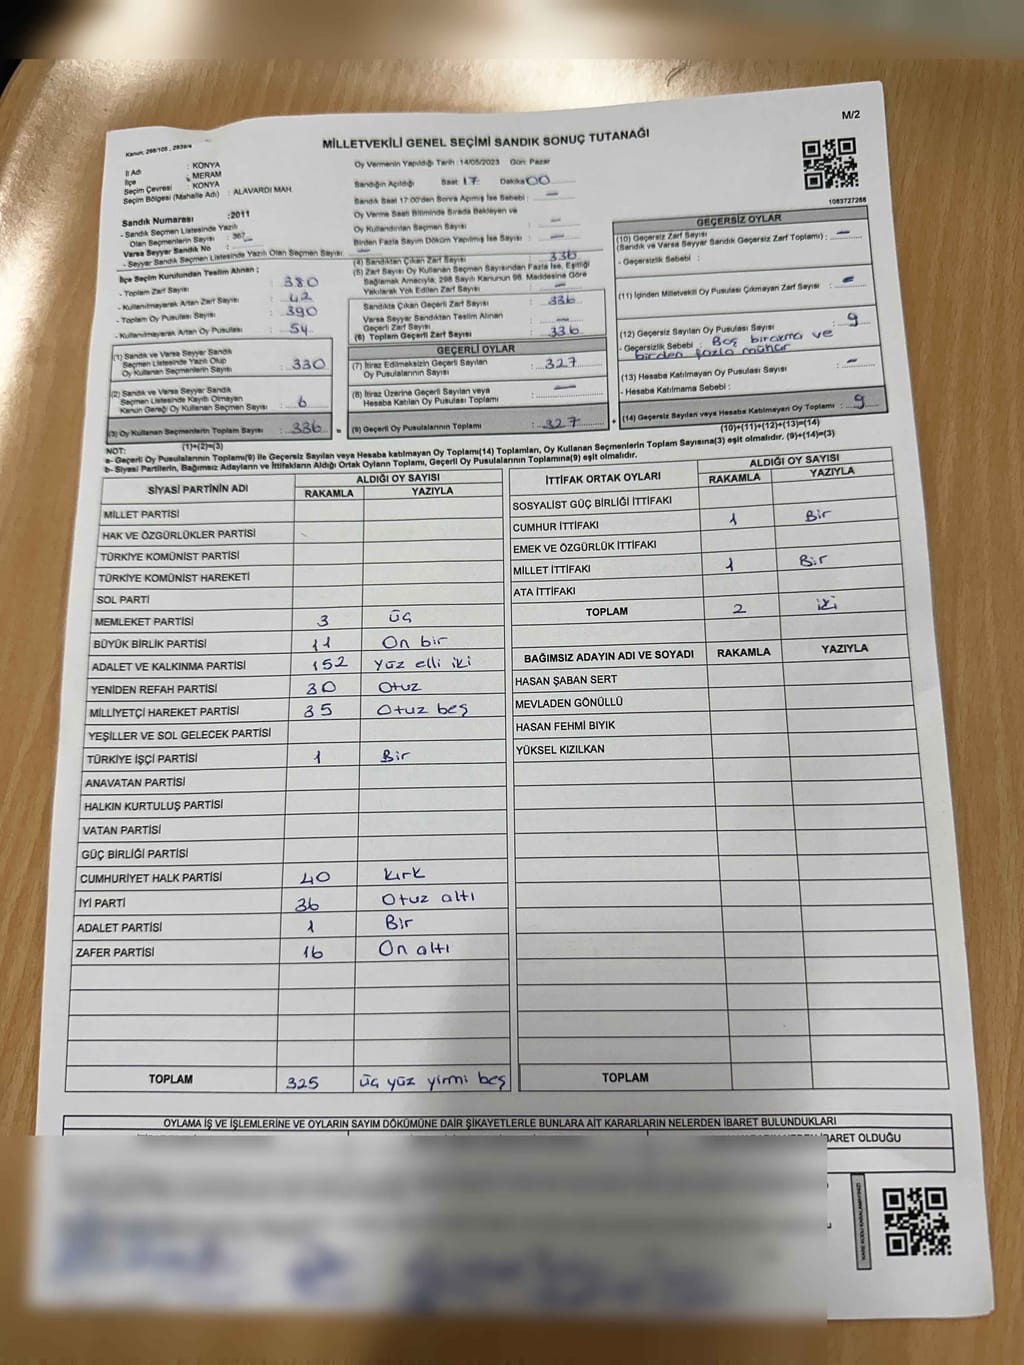 M/2
Kanun: 298/105 , 2839/4
MİLLETVEKİLİ GENEL SEÇİMİ SANDIK SONUÇ TUTANAĞI
İl Adı : KONYA
İlçe : MERAM
Seçim Çevresi : KONYA
Seçim Bölgesi (Mahalle Adı) : ALAVARDI MAH.
Sandık Numarası : 2011
- Sandık Seçmen Listesinde Yazılı
Olan Seçmenlerin Sayısı : 367
Varsa Seyyar Sandık No :
- Seyyar Sandık Seçmen Listesinde Yazılı Olan Seçmen Sayısı: —
İlçe Seçim Kurulundan Teslim Alınan ;
- Toplam Zarf Sayısı : 380
- Kullanılmayarak Artan Zarf Sayısı : 42
- Toplam Oy Pusulası Sayısı : 390
- Kullanılmayarak Artan Oy Pusulası : 54
(1) Sandık ve Varsa Seyyar Sandık
Seçmen Listesinde Yazılı Olup
Oy Kullanan Seçmenlerin Sayısı : 330
(2) Sandık ve Varsa Seyyar Sandık
Seçmen Listesinde Kayıtlı Olmayan
Kanun Gereği Oy Kullanan Seçmen Sayısı : 6
(3) Oy Kullanan Seçmenlerin Toplam Sayısı : 336
(1)+(2)=(3)
Oy Vermenin Yapıldığı Tarih : 14/05/2023 Gün: Pazar
Sandığın Açıldığı Saat: 17 Dakika: 00
Sandık Saat 17:00'den Sonra Açılmış İse Sebebi : —
Oy Verme Saati Bitiminde Sırada Bekleyen ve
Oy Kullandırılan Seçmen Sayısı : —
Birden Fazla Sayım Döküm Yapılmış İse Sayısı : —
(4) Sandıktan Çıkan Zarf Sayısı : 336
(5) Zarf Sayısı Oy Kullanan Seçmen Sayısından Fazla İse, Eşitliği
Sağlamak Amacıyla, 298 Sayılı Kanunun 98. Maddesine Göre
Yakılarak Yok Edilen Zarf Sayısı : —
Sandıkta Çıkan Geçerli Zarf Sayısı : 336
Varsa Seyyar Sandıktan Teslim Alınan
Geçerli Zarf Sayısı : —
(6) Toplam Geçerli Zarf Sayısı : 336
GEÇERLİ OYLAR
(7) İtiraz Edilmeksizin Geçerli Sayılan
Oy Pusulalarının Sayısı : 327
(8) İtiraz Üzerine Geçerli Sayılan veya
Hesaba Katılan Oy Pusulası Toplamı : —
= (9) Geçerli Oy Pusulalarının Toplamı : 327
1083727266
GEÇERSİZ OYLAR
(10) Geçersiz Zarf Sayısı
(Sandık ve Varsa Seyyar Sandık Geçersiz Zarf Toplamı) : —
- Geçersizlik Sebebi :
(11) İçinden Milletvekili Oy Pusulası Çıkmayan Zarf Sayısı : —
(12) Geçersiz Sayılan Oy Pusulası Sayısı : 9
- Geçersizlik Sebebi : Boş bırakma ve
birden fazla mühür
(13) Hesaba Katılmayan Oy Pusulası Sayısı : —
- Hesaba Katılmama Sebebi :
+ (14) Geçersiz Sayılan veya Hesaba Katılmayan Oy Toplamı : 9
(10)+(11)+(12)+(13)=(14)
NOT:
a- Geçerli Oy Pusulalarının Toplamı(9) ile Geçersiz Sayılan veya Hesaba katılmayan Oy Toplamı(14) Toplamları, Oy Kullanan Seçmenlerin Toplam Sayısına(3) eşit olmalıdır. (9)+(14)=(3)
b- Siyasi Partilerin, Bağımsız Adayların ve İttifakların Aldığı Ortak Oyların Toplamı, Geçerli Oy Pusulalarının Toplamına(9) eşit olmalıdır.
SİYASİ PARTİNİN ADI ALDIĞI OY SAYISI
RAKAMLA YAZIYLA
MİLLET PARTİSİ
HAK VE ÖZGÜRLÜKLER PARTİSİ
TÜRKİYE KOMÜNİST PARTİSİ
TÜRKİYE KOMÜNİST HAREKETİ
SOL PARTİ
MEMLEKET PARTİSİ 3 üç
BÜYÜK BİRLİK PARTİSİ 11 On bir
ADALET VE KALKINMA PARTİSİ 152 Yüz elli iki
YENİDEN REFAH PARTİSİ 30 Otuz
MİLLİYETÇİ HAREKET PARTİSİ 35 Otuz beş
YEŞİLLER VE SOL GELECEK PARTİSİ
TÜRKİYE İŞÇİ PARTİSİ 1 Bir
ANAVATAN PARTİSİ
HALKIN KURTULUŞ PARTİSİ
VATAN PARTİSİ
GÜÇ BİRLİĞİ PARTİSİ
CUMHURİYET HALK PARTİSİ 40 Kırk
İYİ PARTİ 36 Otuz altı
ADALET PARTİSİ 1 Bir
ZAFER PARTİSİ 16 On altı
TOPLAM 325 üç yüz yirmi beş
İTTİFAK ORTAK OYLARI ALDIĞI OY SAYISI
RAKAMLA YAZIYLA
SOSYALİST GÜÇ BİRLİĞİ İTTİFAKI
CUMHUR İTTİFAKI 1 Bir
EMEK VE ÖZGÜRLÜK İTTİFAKI
MİLLET İTTİFAKI 1 Bir
ATA İTTİFAKI
TOPLAM 2 iki
BAĞIMSIZ ADAYIN ADI VE SOYADI RAKAMLA YAZIYLA
HASAN ŞABAN SERT
MEVLADEN GÖNÜLLÜ
HASAN FEHMİ BIYIK
YÜKSEL KIZILKAN
TOPLAM
OYLAMA İŞ VE İŞLEMLERİNE VE OYLARIN SAYIM DÖKÜMÜNE DAİR ŞİKAYETLERLE BUNLARA AİT KARARLARIN NELERDEN İBARET BULUNDUKLARI
İBARET OLDUĞU